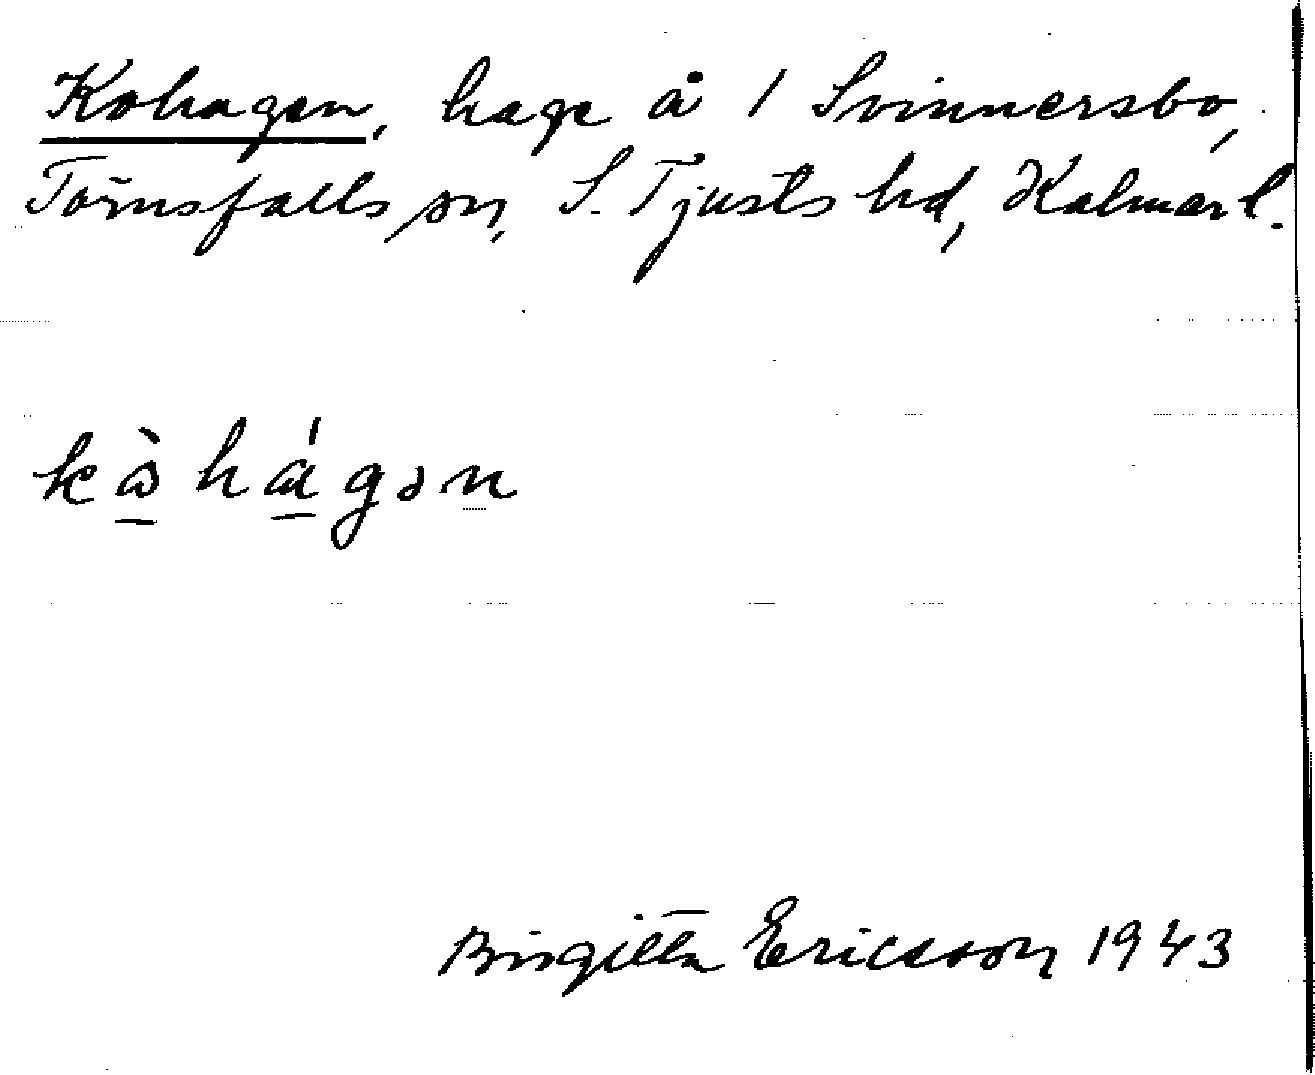 Kohagen, hage å 1 Svinnersbo,
Törnsfalls sn, S. Tjusts hd, Kalmar l.
kòhágən
Birgitta Ericsson 1943